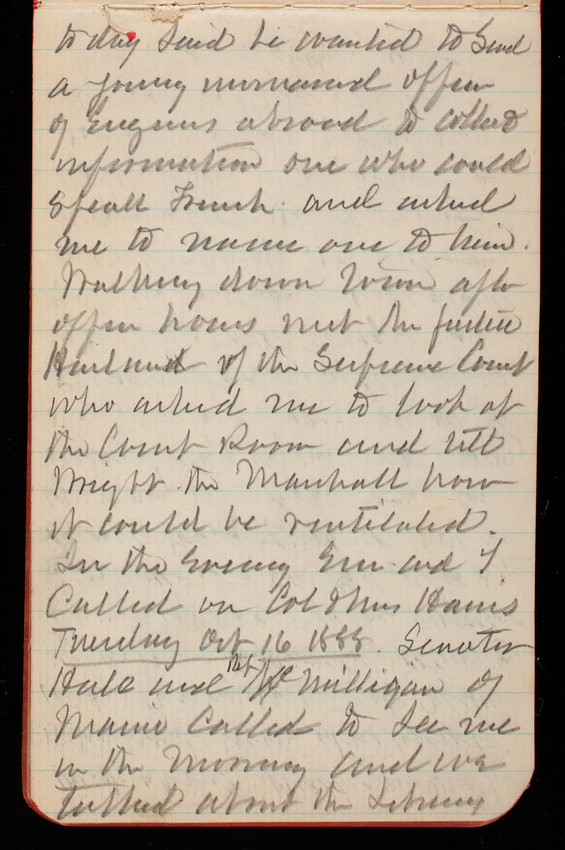 today said he wanted to send
a young unmarried officer
of Engineers abroad to collect
information one who could
speak French. and asked
me to name one to him.
Walking down town after
office hours met Mr Justice
Harland of the Supreme Court
who asked me to look at
the Court Room and tell
Wright the Marshall how
it could be ventilated.
In the Evening Em and I
Called on Col & Mrs Harris
Tuesday Oct 16 1888. Senator
Hale and Mr Milligan of
Maine Called to see me
in the Morning and we
talked about the Library